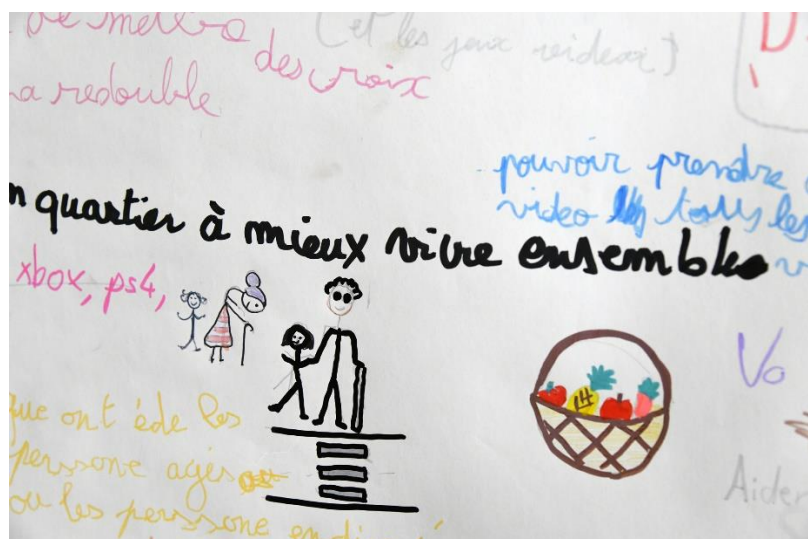 de mettre
des croix
a redouble
(et les jeux videos)
D
pouvoir prendre
video tous les
n quartier à mieux vivre ensemble
xbox, ps4,
Vo
que ont éde les
perssone agés
ou les perssone en
Aider